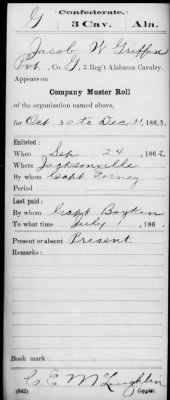 Confederate.
G 3 Cav. Ala.
Jacob W Griffin
Pvt, Co. G, 3 Reg't Alabama Cavalry.
Appears on
Company Muster Roll
of the organization named above,
for Oct 30 to Dec 31, 1863.
Enlisted:
When Sep 24, 1862.
Where Jacksonville
By whom Capt Forney
Period
Last paid:
By whom Capt Boykin
To what time July 1, 186 .
Present or absent Present
Remarks:
Book mark:
C. E. McLaughlin
(642) Copyist.